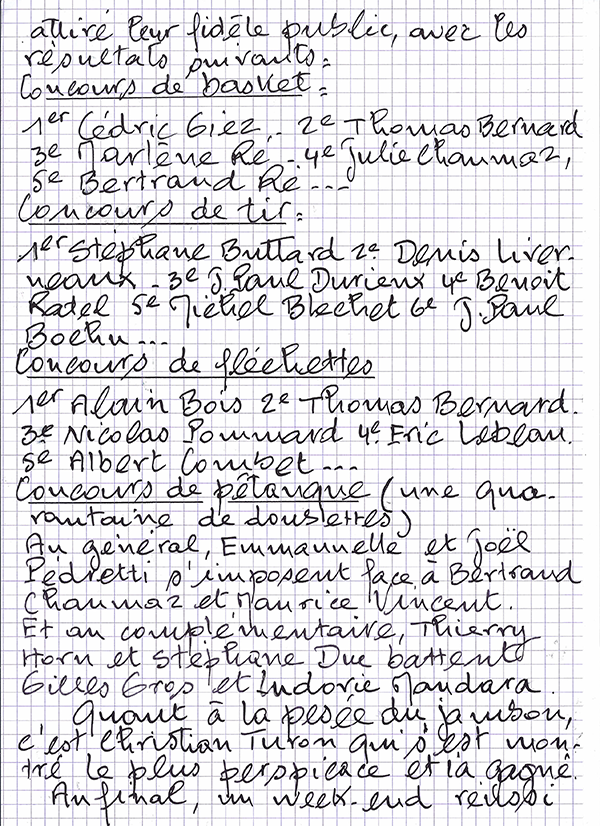 attiré leur fidèle public, avec les
résultats suivants:
Concours de basket:
1er Cédric Giez.. 2e Thomas Bernard
3e Marlène Ré.. 4e Julie Chaumaz,
5e Bertrand Ré ...
Concours de tir:
1er Stéphane Buttard 2e Denis Liver-
neaux - 3e J.Paul Durieux 4e Benoit
Radel 5e Michel Blechet 6e J.Paul
Boehu ...
Concours de fléchettes
1er Alain Bois 2e Thomas Bernard.
3e Nicolas Pommard 4e Eric Lebeau.
5e Albert Combet ...
Concours de pétanque (une qua-
rantaine de doublettes)
Au général, Emmanuelle et Joël
Pedretti s'imposent face à Bertrand
Chaumaz et Maurice Vincent.
Et au complémentaire, Thierry
Horn et Stéphane Duc battent
Gilles Gros et Ludovic Mandara.
Quant à la pesée du jambon,
c'est Christian Turon qui s'est mon-
tré le plus perspicace et l'a gagné.
Au final, un week-end réussi